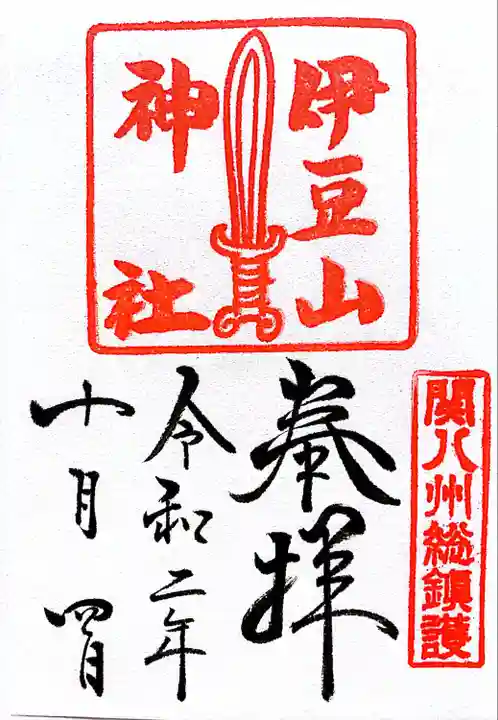 伊豆山
神社
関八州総鎮護
奉拝
令和二年
十月四日